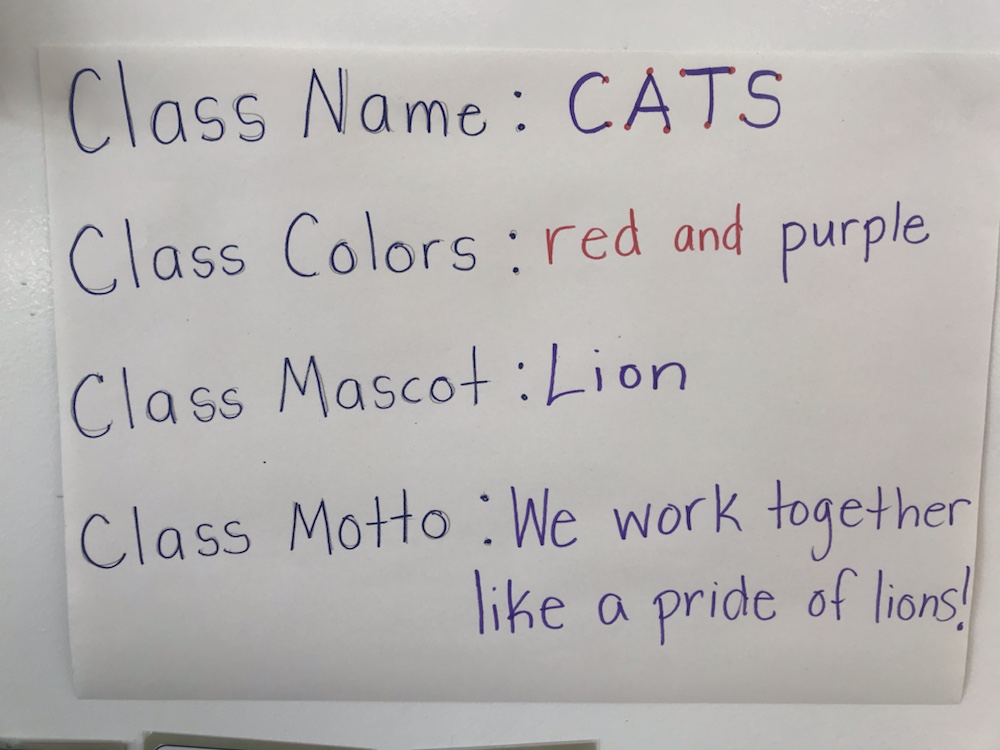 Class Name: CATS
Class Colors: red and purple
Class Mascot: Lion
Class Motto: We work together
like a pride of lions!